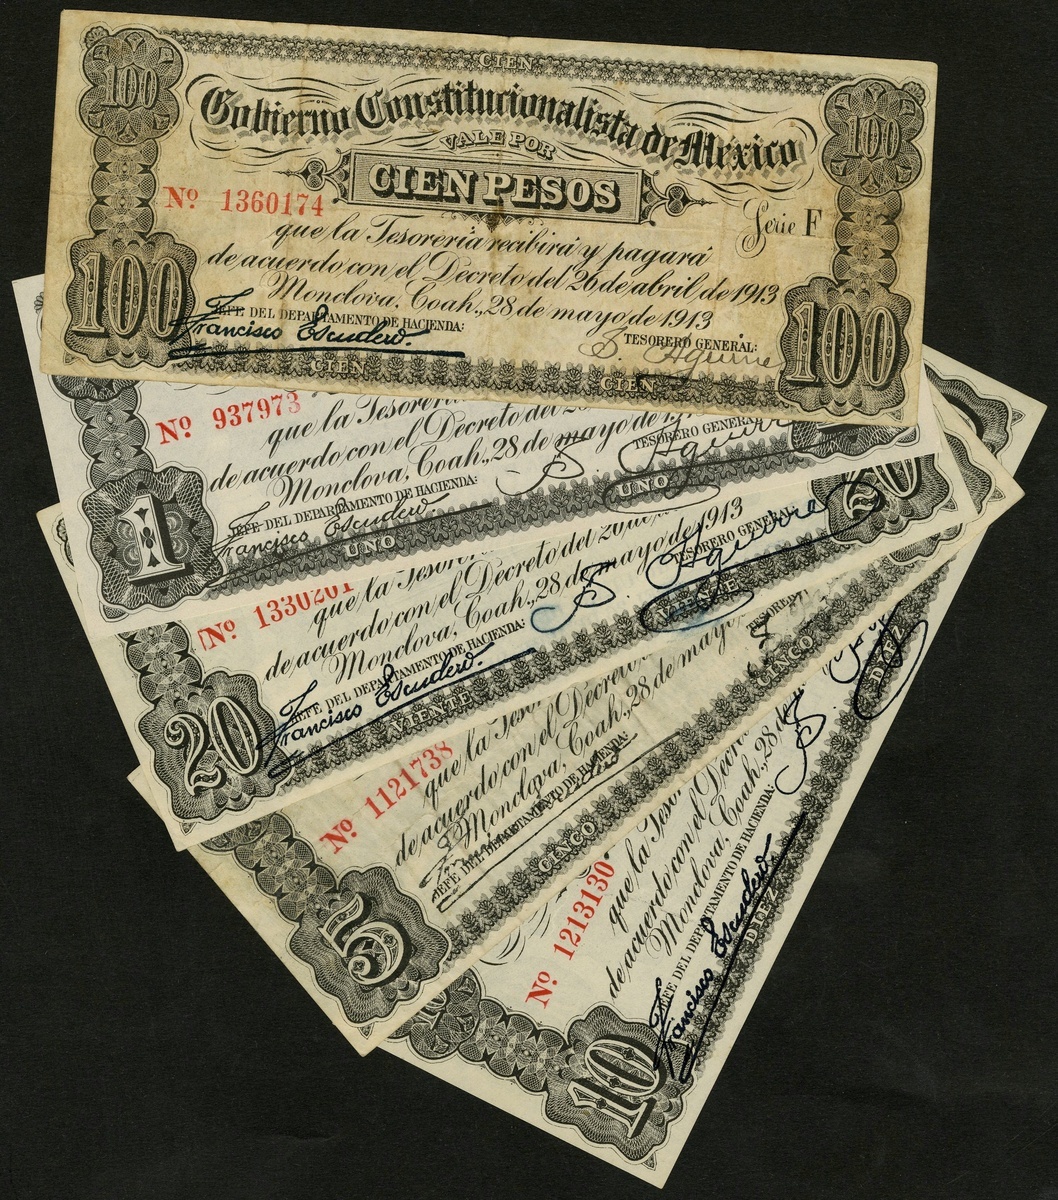 CIEN
100
100
Gobierno Constitucionalista de México
VALE POR
CIEN PESOS
Nº 1360174
Serie F
que la Tesorería recibirá y pagará
de acuerdo con el Decreto del 26 de abril de 1913
Monclova, Coah., 28 de mayo de 1913
JEFE DEL DEPARTAMENTO DE HACIENDA:
TESORERO GENERAL:
Francisco Escudero.
S. Aguirre
100
100
CIEN
CIEN
Nº 937973
que la Tesorería
de acuerdo con el Decreto del
Monclova, Coah., 28 de mayo de
TESORERO GENERAL
JEFE DEL DEPARTAMENTO DE HACIENDA:
S. Aguirre
Francisco Escudero
1
UNO
UNO
Nº 1330201
que la
de acuerdo con el Decreto del 26 de
Monclova, Coah., 28 de mayo de 1913
TESORERO GENERAL:
JEFE DEL DEPARTAMENTO DE HACIENDA:
S. Aguirre
Francisco Escudero.
20
20
VEINTE
VEINTE
Nº 1121738
que la
de acuerdo con el Decreto
Monclova, Coah., 28 de mayo
JEFE DEL DEPARTAMENTO DE HACIENDA:
5
CINCO
CINCO
Nº 1213130
que la
de acuerdo con el
Monclova, Coah., 28 de
JEFE DEL DEPARTAMENTO DE HACIENDA:
S.
Francisco Escudero
10
DIEZ
DIEZ